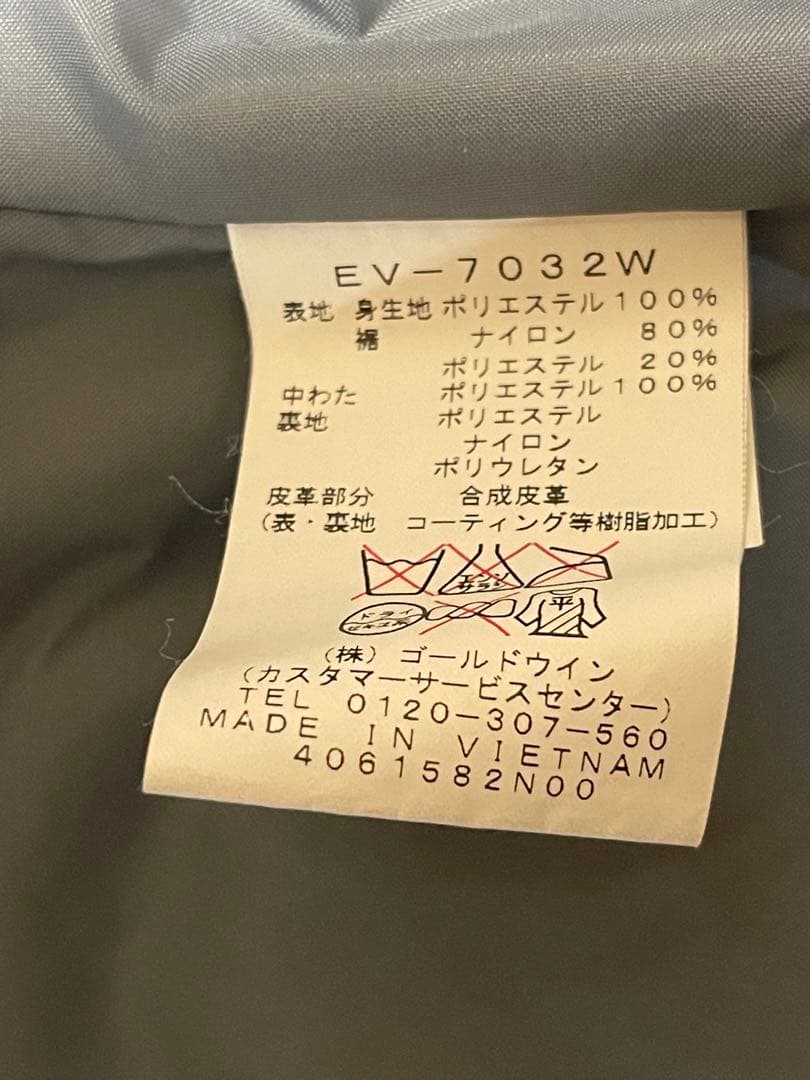 EV-7032W
表地 身生地 ポリエステル 100%
裾 ナイロン 80%
ポリエステル 20%
中わた ポリエステル 100%
裏地 ポリエステル
ナイロン
ポリウレタン
皮革部分 合成皮革
(表・裏地 コーティング等樹脂加工)
エンソ
サラシ
ドライ
セキユ系
平
(株) ゴールドウイン
(カスタマーサービスセンター)
TEL 0120-307-560
MADE IN VIETNAM
4061582N00